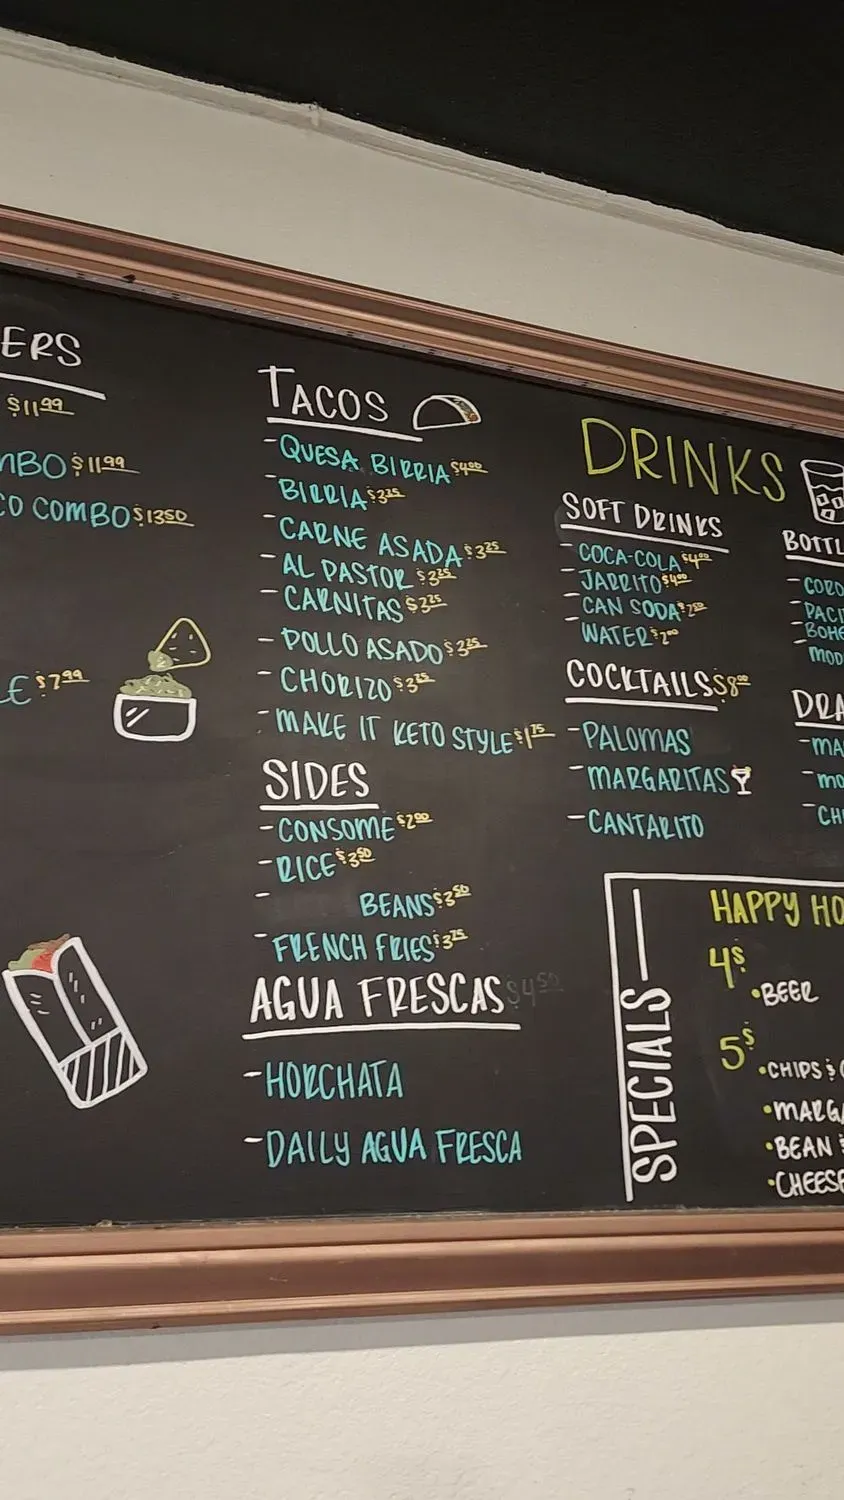 ERS
$11.99
MBO $11.99
CO COMBO $13.50
LE $7.99
TACOS
- QUESA BIRRIA $4.00
- BIRRIA $3.25
- CARNE ASADA $3.25
- AL PASTOR $3.25
- CARNITAS $3.25
- POLLO ASADO $3.25
- CHORIZO $3.25
- MAKE IT KETO STYLE $1.75
SIDES
- CONSOME $2.00
- RICE $3.50
- BEANS $3.50
- FRENCH FRIES $3.75
AGUA FRESCAS $4.50
- HORCHATA
- DAILY AGUA FRESCA
DRINKS
SOFT DRINKS
- COCA-COLA $4.00
- JARRITO $4.00
- CAN SODA $2.50
- WATER $2.00
COCKTAILS $8.00
- PALOMAS
- MARGARITAS
- CANTARITO
BOTTL
- CORO
- PACI
- BOHE
- MOD
DRA
- MA
- MO
- CH
SPECIALS
HAPPY HO
4$
• BEER
5$
• CHIPS &
• MARGA
• BEAN &
• CHEESE